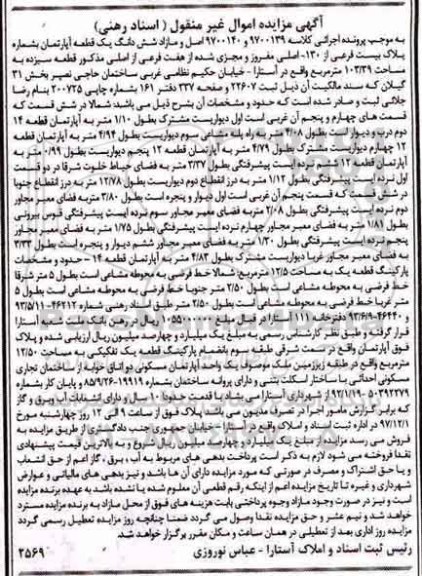 آگهی مزایده اموال غیر منقول ( اسناد رهنی)
به موجب پرونده اجرائی کلاسه ۹۷۰۰۱۳۹ و ۹۷۰۰۱۴۰ اصل و مازاد شش دانگ یک قطعه آپارتمان بشماره
پلاک بیست فرعی از ۱۳۰- اصلی مفروز و مجزی شده از هفت فرعی از اصلی مذکور قطعه سیزده به
مساحت ۱۰۳/۳۹ مترمربع واقع در آستارا - خیابان حکیم نظامی غربی ساختمان حاجی نصیر بخش ۳۱
گیلان که سند مالکیت آن ذیل ثبت 22607 و صفحه ۳۳۷ دفتر ۱۶۱ بشماره چاپی ۲۰۰۷۲۵ بنام رضا
جلائی ثبت و صادر شده است که حدود و مشخصات آن بشرح ذیل می باشد: شمالا در شش قسمت که
قسمت های چهارم و پنجم آن غربی است اول دیواریست مشترک بطول ۱/۱۰ متر به آپارتمان قطعه ۱۴
دوم درب و دیوار است بطول ۴/۰۸ متر به راه پله مشاعی سوم دیواریست بطول ۴/۹۴ متر به آپارتمان قطعه
۱۲ چهارم دیواریست مشترک بطول ۴/۷۹ متر به آپارتمان قطعه ۱۲ پنجم دیواریست بطول ۰/۹۹ متر به
آپارتمان قطعه ۱۲ ششم نرده ایست پیشرفتگی بطول ۲/۳۷ متر به فضای حیاط خلوت شرقا در دو قسمت
اول نرده ایست پیشرفتگی بطول ۱/۱۲ متر به درز انقطاع دوم دیواریست بطول ۱۲/۷۸ متر به درز انقطاع جنوبا
در شش قسمت که قسمت پنجم آن غربی است اول دیوار و پنجره است بطول ۳/۸۰ متر به فضای معبر مجاور
دوم نرده ایست پیشرفتگی بطول ۲/۰۸ متر به فضای معبر مجاور سوم نرده ایست پیشرفتگی قوس بیرونی
بطول ۱/۸۱ متر به فضای معبر مجاور چهارم نرده ایست پیشرفتگی بطول ۱/۷۵ متر به فضای معبر مجاور
پنجم نرده ایست پیشرفتگی بطول ۱/۲۰ متر به فضای معبر مجاور ششم دیوار و پنجره است بطول ۳/۳۳
متر به فضای معبر مجاور غربا دیواریست مشترک بطول ۴/۸۳ متر به آپارتمان قطعه ۱۴ - حدود و مشخصات
پارکینگ قطعه یک به مساحت ۱۲/۵ مترمربع: شمالا خط فرضی به محوطه مشاعی است بطول ۵ متر شرقا
خط فرضی به محوطه مشاعی است بطول ۲/۵۰ متر جنوبا خط فرضی به محوطه مشاعی است بطول ۵
متر غربا خط فرضی به محوطه مشاعی است بطول ۲/۵۰ متر طبق اسناد رهنی شماره ۴۶۲۱۲-۹۳/۵/۱۱
و ۴۶۴۴۰-۹۳/۶/۹ دفترخانه ۱۱۱ آستارا در قبال مبلغ ۱۰۵۵۰۰۰۰۰۰ ریال در رهن بانک ملت شعبه آستارا
قرار گرفته و طبق نظر کارشناس رسمی به مبلغ یک میلیارد و چهارصد میلیون ریال ارزیابی شده و پلاک
فوق آپارتمان واقع در سمت شرقی طبقه سوم بانضمام پارکینگ قطعه یک تفکیکی به مساحت ۱۲/۵۰
مترمربع واقع در طبقه زیرزمین ملک موصوف یک واحد آپارتمان مسکونی دو اتاق خوابه از ساختمان تجاری
مسکونی احداثی با ساختار اسکلت بتنی و دارای پروانه ساختمان بشماره ۱۹۹۱۹-۸۵/۹/۲۶ و پایان کار بشماره
۵۰۳۹۲۲۷۹-۹۳/۱/۱۹ از شهرداری آستارا می باشد با قدمت حدودا ۱۰ سال و دارای انشعابات آب وبرق و گاز
که برابر گزارش مامور اجرا در تصرف مدیون می باشد پلاک فوق از ساعت ۹ الی ۱۲ روز چهارشنبه مورخ
۹۷/۱۲/۱ در اداره ثبت اسناد و املاک واقع در آستارا - خیابان جمهوری جنب دادگستری از طریق مزایده به
فروش می رسد مزایده از مبلغ یک میلیارد و چهارصد میلیون ریال شروع و به بالاترین قیمت پیشنهادی
نقدا فروخته می شود لازم به ذکر است پرداخت بدهی های مربوط به آب ، برق ، گاز اعم از حق انشعاب
و یا حق اشتراک و مصرف در صورتی که مورد مزایده دارای آن ها باشد و نیز بدهی های مالیاتی و عوارض
شهرداری و غیره تا تاریخ مزایده اعم از اینکه رقم قطعی آن معلوم شده یا نشده باشد به عهده برنده مزایده
است و نیز در صورت وجود مازاد وجوه پرداختی بابت هزینه های فوق از محل مازاد به برنده مزایده مسترد
خواهد شد و نیم عشر و حق مزایده نقدا وصول می گردد ضمنا چنانچه روز مزایده تعطیل رسمی گردد
مزایده روز اداری بعد از تعطیلی در همان ساعت و مکان مقرر برگزار خواهد شد.
رئیس ثبت اسناد و املاک آستارا - عباس نوروزی
۲۵۶۹